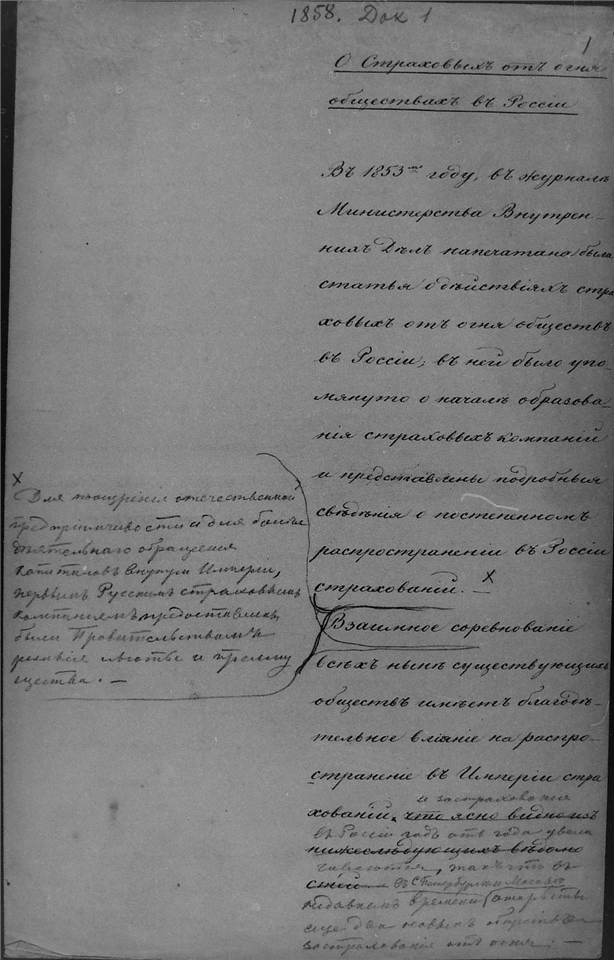 1858. Док 1
1
О Страховыхъ отъ огня
обществахъ въ Россіи
Въ 1853мъ году, въ журналѣ
Министерства Внутрен-
нихъ Дѣлъ напечатана была
статья о дѣйствіяхъ стра
ховыхъ отъ огня обществъ
въ Россіи; въ ней было упо-
мянуто о началѣ образова-
нія страховыхъ компаній
и представлены подробныя
свѣдѣнія о постепенномъ
распространеніи въ Россіи
страхованій. — х
х
Для поощренія отечественной
предпріимчивости и для болѣе
дѣятельнаго обращенія
капиталовъ внутри Имперіи,
первымъ Русскимъ страховымъ
компаніямъ предоставлены
были Правительствомъ
разныя льготы и преиму
щества. —
Взаимное соревнованіе
всѣхъ нынѣ существующихъ
обществъ имѣетъ благодѣ-
тельное вліяніе на распро-
страненіе въ Имперіи стра
хованій, что ясно видно изъ
и застрахованія
въ Россіи годъ отъ года увели
нижеслѣдующихъ вѣдомо
чиваются, такъ что въ
стей въ С. Петербургѣ и Москвѣ
недавнемъ времени открыты
еще два новыхъ общества
застрахованія отъ огня. —